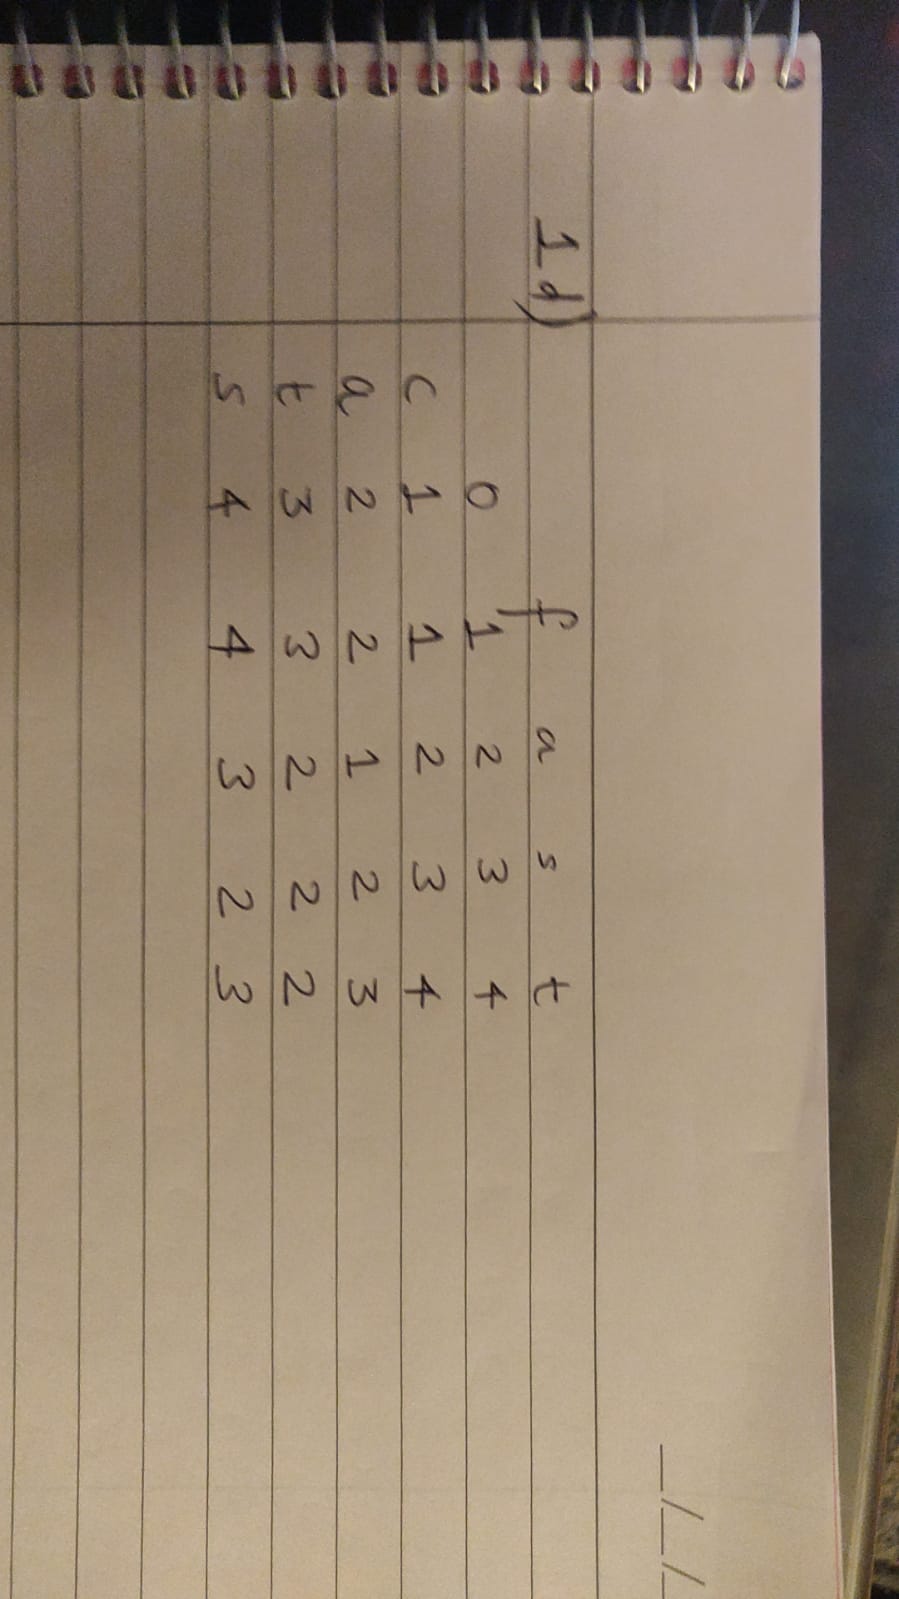 1d) f a s t
0 1 2 3 4
c 1 1 2 3 4
a 2 2 1 2 3
t 3 3 2 2 2
s 4 4 3 2 3
_/_/_